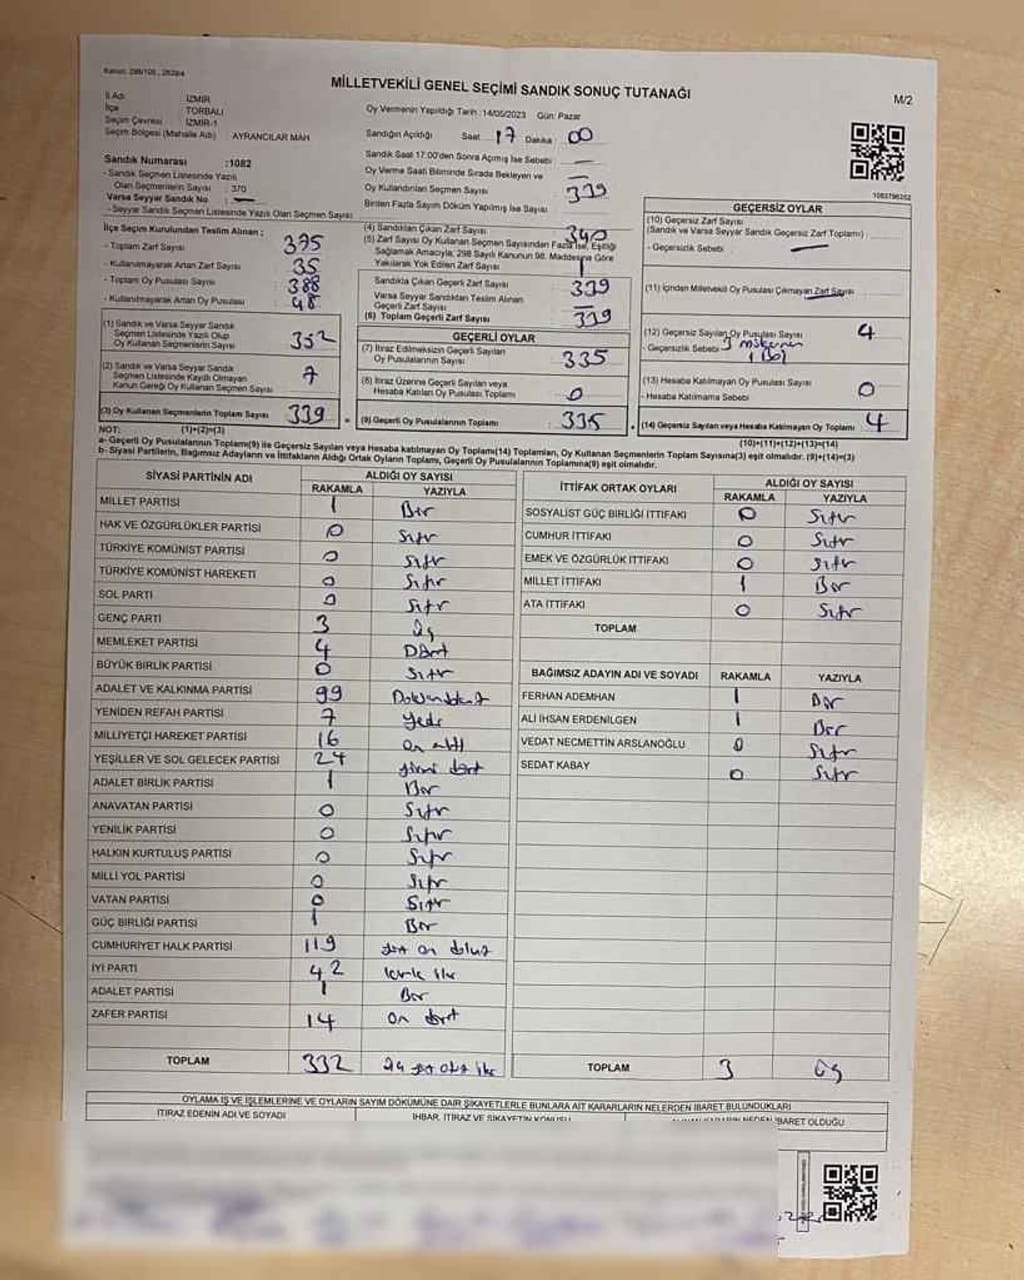 Kanun: 298/105, 2839/4
MİLLETVEKİLİ GENEL SEÇİMİ SANDIK SONUÇ TUTANAĞI
M/2
İl Adı : İZMİR
İlçe : TORBALI
Seçim Çevresi : İZMİR-1
Seçim Bölgesi (Mahalle Adı) : AYRANCILAR MAH
Oy Vermenin Yapıldığı Tarih : 14/05/2023 Gün: Pazar
Sandığın Açıldığı Saat 17 Dakika : 00
Sandık Saat 17:00'den Sonra Açmış İse Sebebi : —
Oy Verme Saati Bitiminde Sırada Bekleyen ve
Oy Kullandırılan Seçmen Sayısı 339
Birden Fazla Sayım Döküm Yapılmış İse Sayısı
Sandık Numarası :1082
- Sandık Seçmen Listesinde Yazılı
Olan Seçmenlerin Sayısı : 370
Varsa Seyyar Sandık No —
- Seyyar Sandık Seçmen Listesinde Yazılı Olan Seçmen Sayısı
İlçe Seçim Kurulundan Teslim Alınan ;
- Toplam Zarf Sayısı 375
- Kullanılmayarak Artan Zarf Sayısı 35
- Toplam Oy Pusulası Sayısı 388
- Kullanılmayarak Artan Oy Pusulası 48
(1) Sandık ve Varsa Seyyar Sandık
Seçmen Listesinde Yazılı Olup
Oy Kullanan Seçmenlerin Sayısı 332
(2) Sandık ve Varsa Seyyar Sandık
Seçmen Listesinde Kayıtlı Olmayan
Kanun Gereği Oy Kullanan Seçmen Sayısı 7
(3) Oy Kullanan Seçmenlerin Toplam Sayısı 339
(4) Sandıktan Çıkan Zarf Sayısı 340
(5) Zarf Sayısı Oy Kullanan Seçmen Sayısından Fazla İse, Eşitliği
Sağlamak Amacıyla, 298 Sayılı Kanunun 98. Maddesine Göre
Yakılarak Yok Edilen Zarf Sayısı 1
Sandıkta Çıkan Geçerli Zarf Sayısı 339
Varsa Seyyar Sandıktan Teslim Alınan
Geçerli Zarf Sayısı —
(6) Toplam Geçerli Zarf Sayısı 339
GEÇERLİ OYLAR
(7) İtiraz Edilmeksizin Geçerli Sayılan
Oy Pusulalarının Sayısı 335
(8) İtiraz Üzerine Geçerli Sayılan veya
Hesaba Katılan Oy Pusulası Toplamı 0
(9) Geçerli Oy Pusulalarının Toplamı 335
1083796352
GEÇERSİZ OYLAR
(10) Geçersiz Zarf Sayısı
(Sandık ve Varsa Seyyar Sandık Geçersiz Zarf Toplamı) :
- Geçersizlik Sebebi : —
(11) İçinden Milletvekili Oy Pusulası Çıkmayan Zarf Sayısı
(12) Geçersiz Sayılan Oy Pusulası Sayısı 4
- Geçersizlik Sebebi 3
1 Boş
(13) Hesaba Katılmayan Oy Pusulası Sayısı 0
- Hesaba Katılmama Sebebi
(14) Geçersiz Sayılan veya Hesaba Katılmayan Oy Toplamı 4
NOT: (1)+(2)=(3) (10)+(11)+(12)+(13)=(14)
a- Geçerli Oy Pusulalarının Toplamı(9) ile Geçersiz Sayılan veya Hesaba katılmayan Oy Toplamı(14) Toplamları, Oy Kullanan Seçmenlerin Toplam Sayısına(3) eşit olmalıdır. (9)+(14)=(3)
b- Siyasi Partilerin, Bağımsız Adayların ve İttifakların Aldığı Ortak Oyların Toplamı, Geçerli Oy Pusulalarının Toplamına(9) eşit olmalıdır.
SİYASİ PARTİNİN ADI ALDIĞI OY SAYISI
RAKAMLA YAZIYLA
MİLLET PARTİSİ 1 Bir
HAK VE ÖZGÜRLÜKLER PARTİSİ 0 Sıfır
TÜRKİYE KOMÜNİST PARTİSİ 0 Sıfır
TÜRKİYE KOMÜNİST HAREKETİ 0 Sıfır
SOL PARTİ 0 Sıfır
GENÇ PARTİ 3 Üç
MEMLEKET PARTİSİ 4 Dört
BÜYÜK BİRLİK PARTİSİ 0 Sıfır
ADALET VE KALKINMA PARTİSİ 99 Doksandokuz
YENİDEN REFAH PARTİSİ 7 Yedi
MİLLİYETÇİ HAREKET PARTİSİ 16 on altı
YEŞİLLER VE SOL GELECEK PARTİSİ 24 yirmi dört
ADALET BİRLİK PARTİSİ 1 Bir
ANAVATAN PARTİSİ 0 Sıfır
YENİLİK PARTİSİ 0 Sıfır
HALKIN KURTULUŞ PARTİSİ 0 Sıfır
MİLLİ YOL PARTİSİ 0 Sıfır
VATAN PARTİSİ 0 Sıfır
GÜÇ BİRLİĞİ PARTİSİ 1 Bir
CUMHURİYET HALK PARTİSİ 119 yüz on dokuz
İYİ PARTİ 42 kırk iki
ADALET PARTİSİ 1 Bir
ZAFER PARTİSİ 14 On dört
TOPLAM 332 üç yüz otuz iki
İTTİFAK ORTAK OYLARI ALDIĞI OY SAYISI
RAKAMLA YAZIYLA
SOSYALİST GÜÇ BİRLİĞİ İTTİFAKI 0 Sıfır
CUMHUR İTTİFAKI 0 Sıfır
EMEK VE ÖZGÜRLÜK İTTİFAKI 0 Sıfır
MİLLET İTTİFAKI 1 Bir
ATA İTTİFAKI 0 Sıfır
TOPLAM
BAĞIMSIZ ADAYIN ADI VE SOYADI RAKAMLA YAZIYLA
FERHAN ADEMHAN 1 Bir
ALİ İHSAN ERDENİLGEN 1 Bir
VEDAT NECMETTİN ARSLANOĞLU 0 Sıfır
SEDAT KABAY 0 Sıfır
TOPLAM 3 Üç
OYLAMA İŞ VE İŞLEMLERİNE VE OYLARIN SAYIM DÖKÜMÜNE DAİR ŞİKAYETLERLE BUNLARA AİT KARARLARIN NELERDEN İBARET BULUNDUKLARI
İTİRAZ EDENİN ADI VE SOYADI İHBAR, İTİRAZ VE ŞİKAYETİN KONUSU NEDEN İBARET OLDUĞU